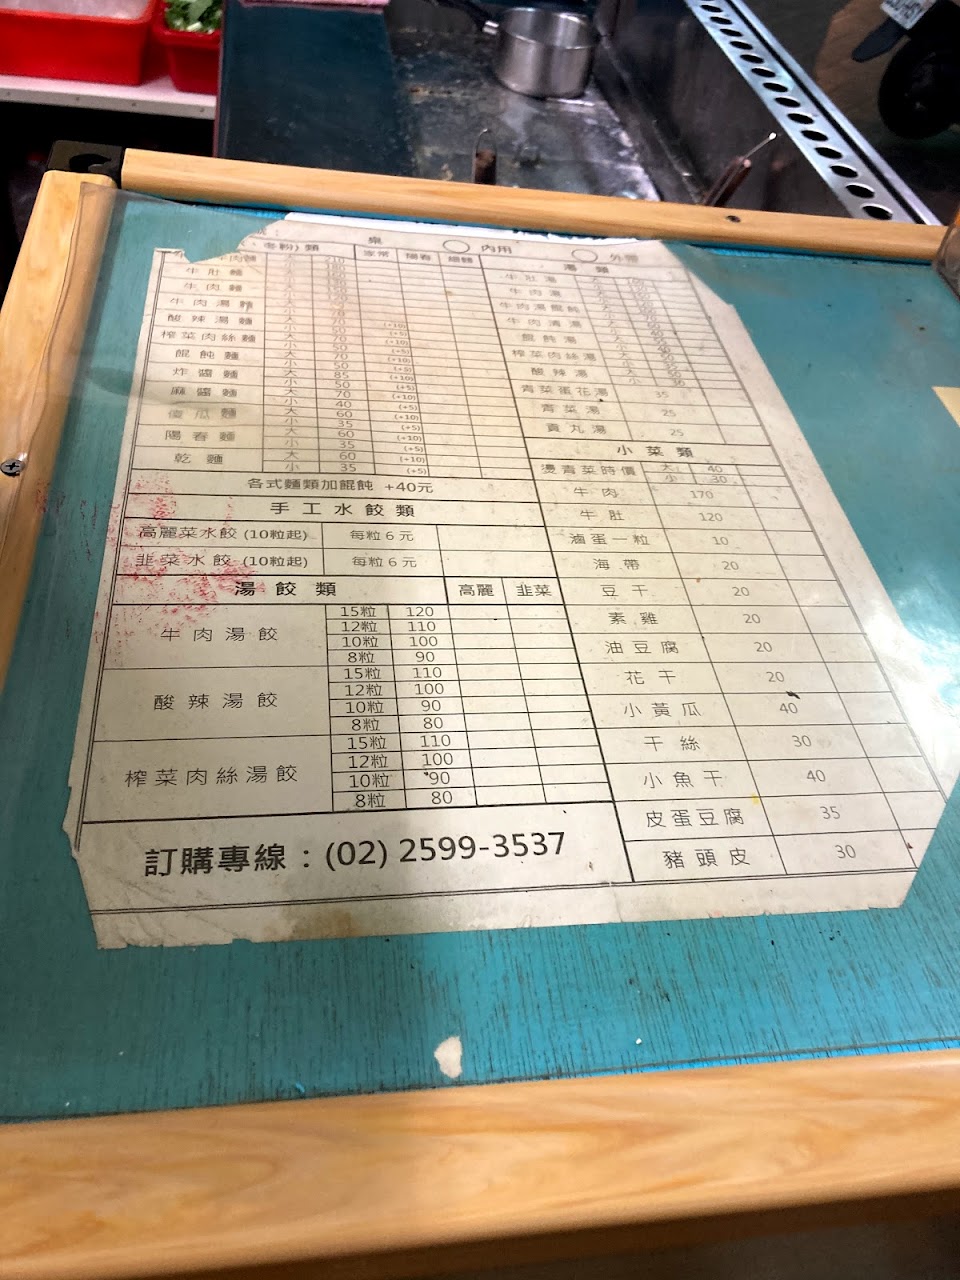 桌 內用 外帶
、冬粉) 類 家常 陽春 細麵
牛肚麵
牛肉麵
牛肉湯麵
酸辣湯麵 小 (+10)
榨菜肉絲麵 大 70 (+5)
小
餛飩麵 大 70
小 50
炸醬麵 大 85 (+10)
小 50 (+5)
麻醬麵 大 70 (+10)
小 40 (+5)
傻瓜麵 大 60 (+10)
小 35 (+5)
陽春麵 大 60 (+10)
小 35 (+5)
乾麵 大 60 (+10)
小 35 (+5)
各式麵類加餛飩 +40元
手工水餃類
高麗菜水餃 (10粒起) 每粒 6 元
韭菜水餃 (10粒起) 每粒 6 元
湯餃類 高麗 韭菜
牛肉湯餃 15粒 120
12粒 110
10粒 100
8粒 90
酸辣湯餃 15粒 110
12粒 100
10粒 90
8粒 80
榨菜肉絲湯餃 15粒 110
12粒 100
10粒 90
8粒 80
訂購專線：(02) 2599-3537
湯類
牛肚湯
牛肉湯
牛肉湯餛飩
牛肉清湯
餛飩湯
榨菜肉絲湯
酸辣湯
青菜蛋花湯 35
青菜湯 25
貢丸湯 25
小菜類
燙青菜時價 大 40
小 30
牛肉 170
牛肚 120
滷蛋一粒 10
海帶 20
豆干 20
素雞 20
油豆腐 20
花干 20
小黃瓜 40
干絲 30
小魚干 40
皮蛋豆腐 35
豬頭皮 30